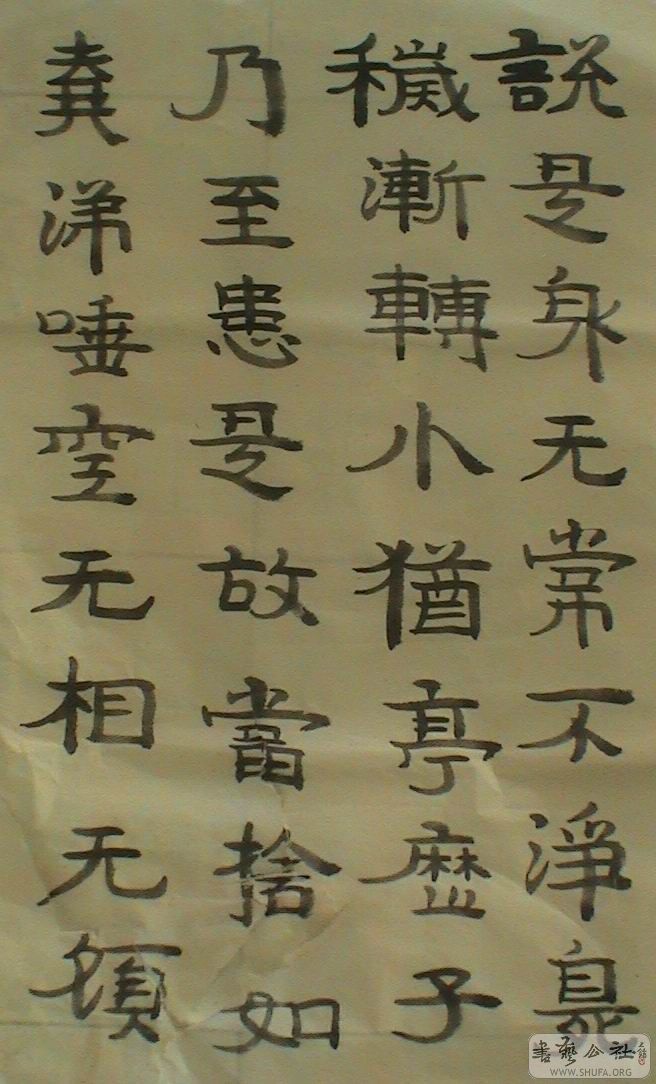 説是身无常不淨臭
穢漸轉小猶亭歴子
乃至患是故當捨如
糞涕唾空无相无願
書藝公社
WWW.SHUFA.ORG